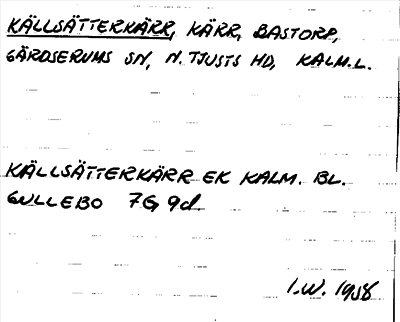 KÄLLSÄTTERKÄRR, KÄRR, BASTORP,
GÄRDSERUMS SN, N. TJUSTS HD, KALM. L.
KÄLLSÄTTERKÄRR EK KALM. BL.
GULLEBO 7G 9d
I.W. 1958